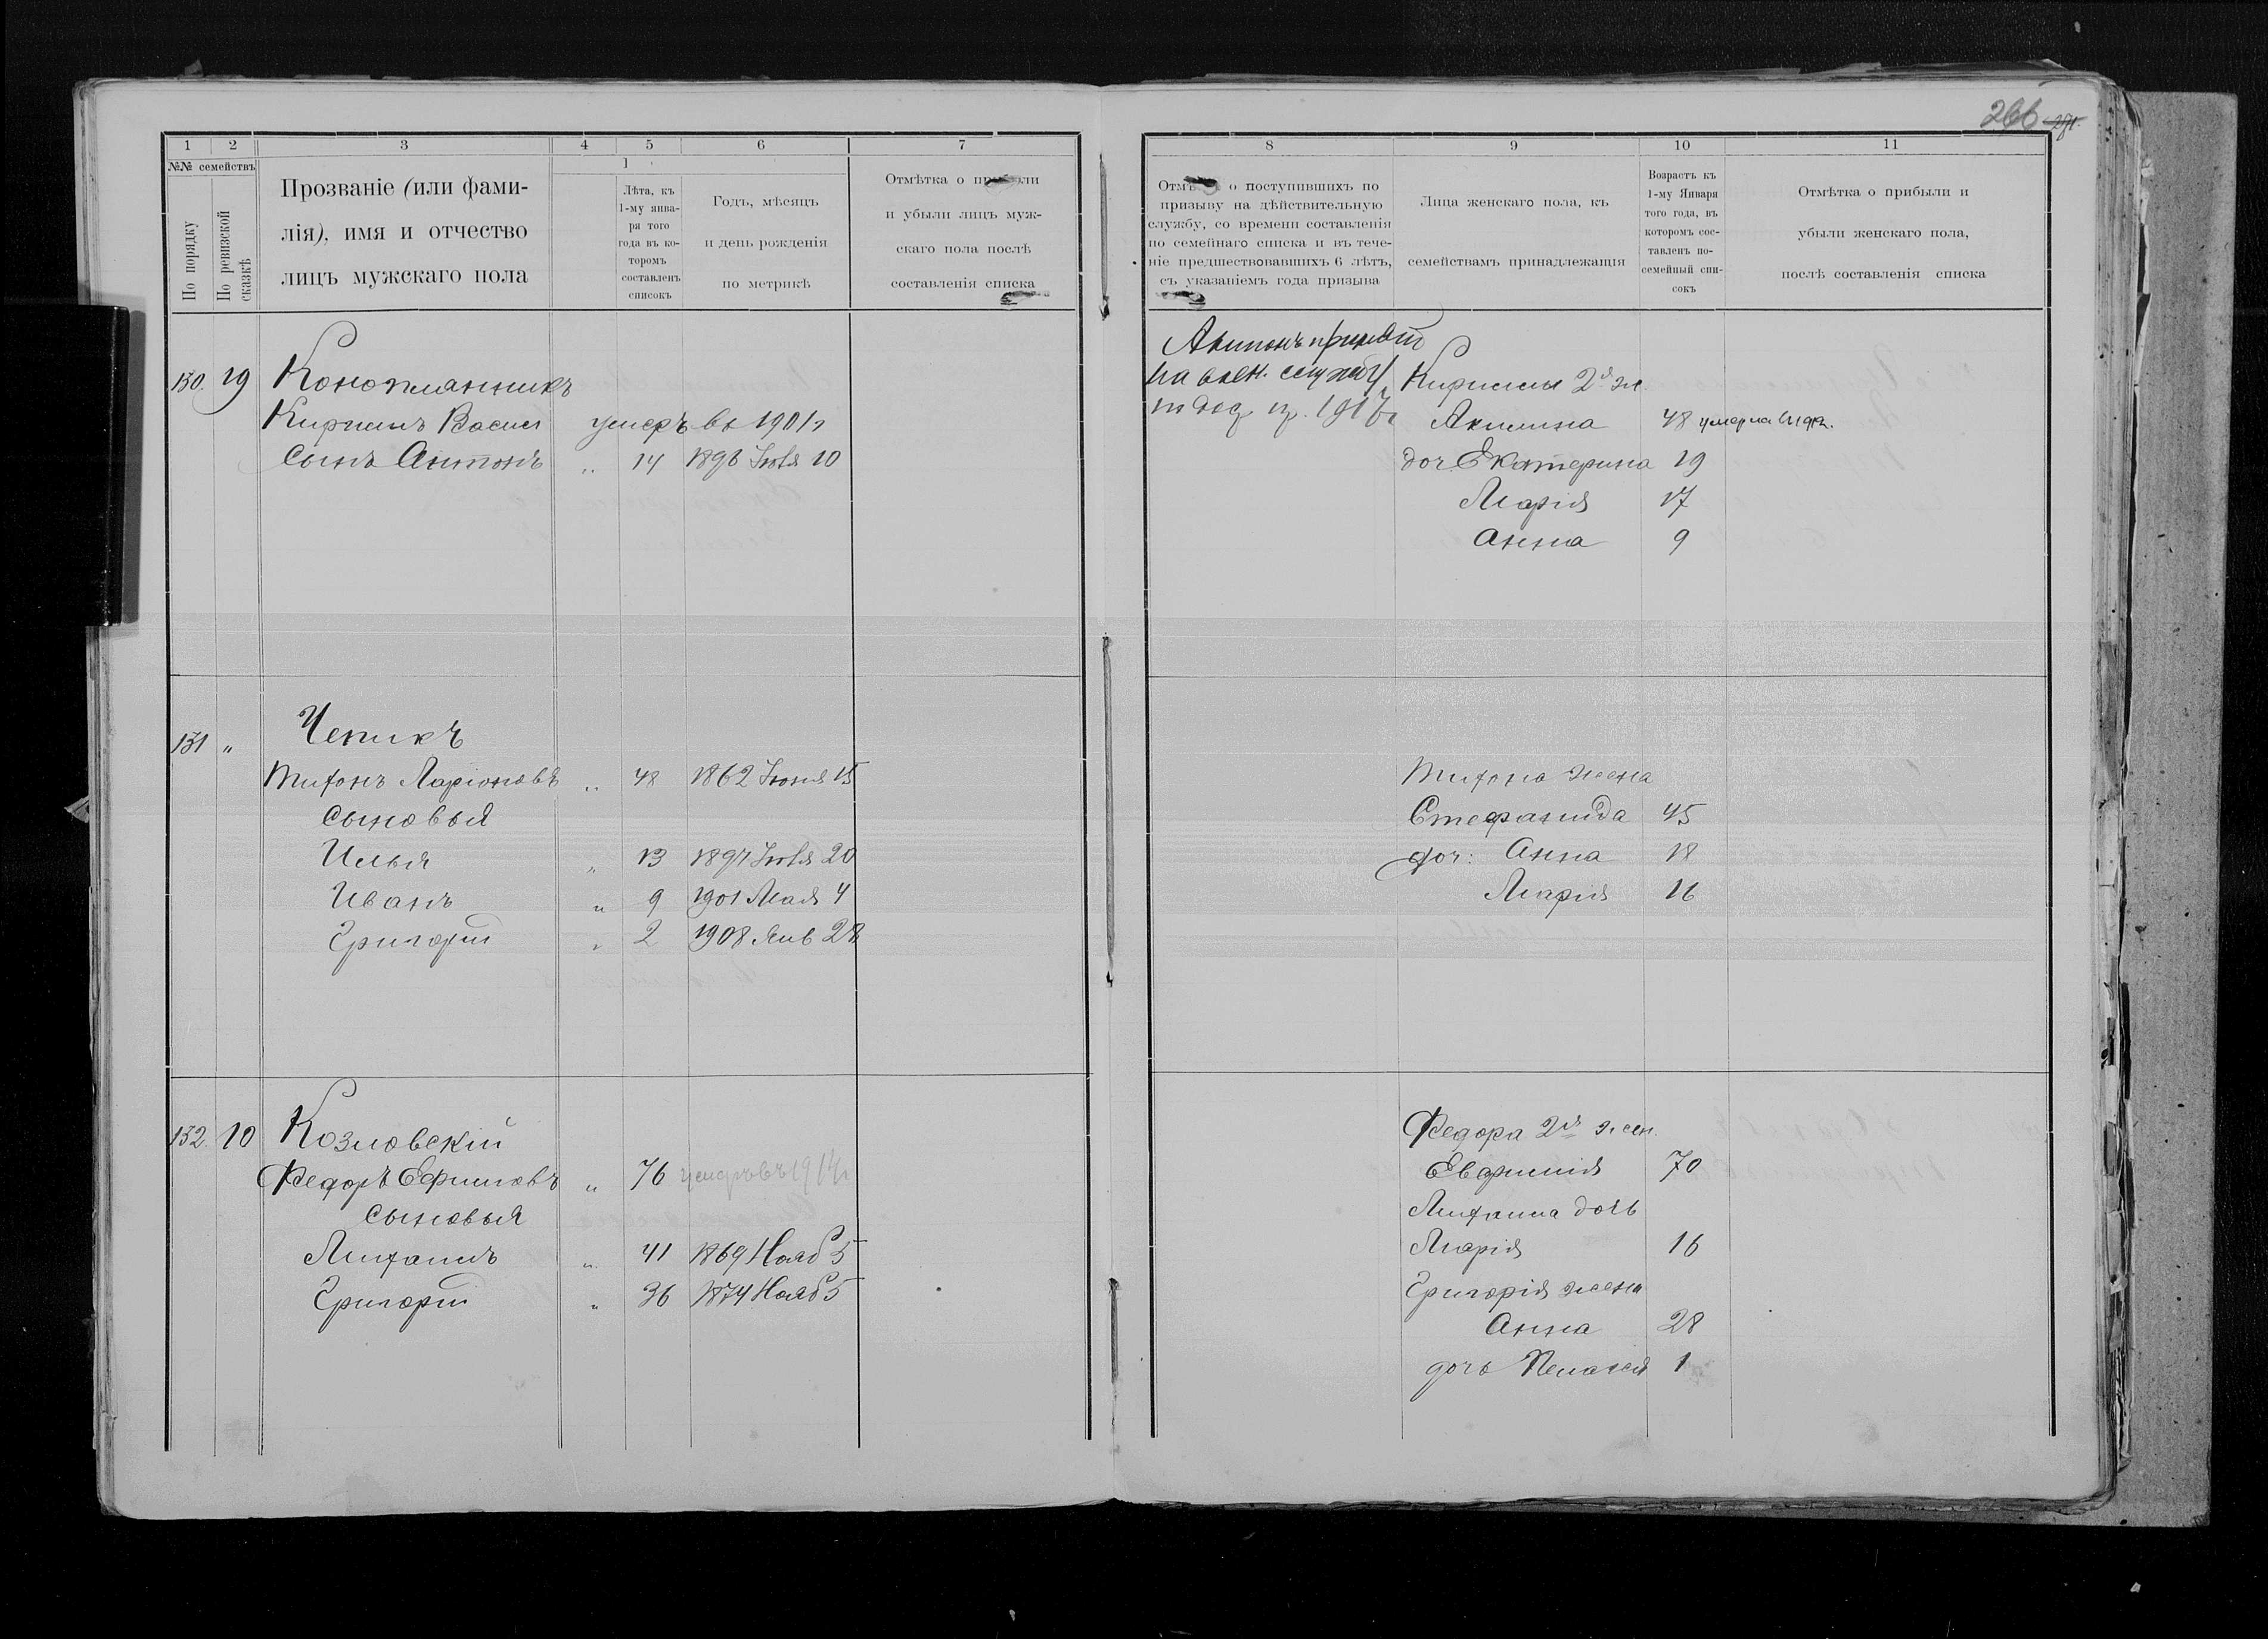 266
1 2 3 4 5 6 7
№№ семействъ
По порядку
По ревизской сказкѣ
Прозваніе (или фами-
лія), имя и отчество
лицъ мужскаго пола
1
Лѣта, къ
1-му янва-
ря того
года въ ко-
торомъ
составленъ
списокъ
Годъ, мѣсяцъ
и день рожденія
по метрикѣ
Отмѣтка о прибыли
и убыли лицъ муж-
скаго пола послѣ
составленія списка
130. 19 Конопланникъ
Кирилъ Васил умеръ въ 1901 г
Сынъ Антонъ " 14 1896 Іюля 10
131 " Чепикъ
Тихонъ Ларіоновъ " 48 1862 Іюня 15
Сыновья
Илья " 13 1897 Іюля 20
Иванъ " 9 1901 Мая 4
Григорій " 2 1908 Янв 28
132. 10 Козловскій
Федоръ Ефимовъ " 76 умеръ въ 1914г
Сыновья
Митанъ " 41 1869 Нояб 5
Григорій " 36 1874 Нояб 5
8 9 10 11
Отмѣтка о поступившихъ по
призыву на дѣйствительную
службу, со времени составленія
по семейнаго списка и въ тече-
ніе предшествовавшихъ 6 лѣтъ,
съ указаніемъ года призыва
Лица женскаго пола, къ
семействамъ принадлежащія
Возрастъ къ
1-му Января
того года, въ
которомъ сос-
тавленъ по-
семейный спи-
сокъ
Отмѣтка о прибыли и
убыли женскаго пола,
послѣ составленія списка
принятъ
на воен. службу
Кирилы 2я ж.
Акилина 48 умерла
доч. Екатерина 19
Марія 17
Анна 9
Тихона жена
Стефанида 45
доч: Анна 18
Марія 16
Федора 2я жен.
Евфимія 70
дочь
Марія 16
Григорія жена
Анна 28
дочь Пелагея 1